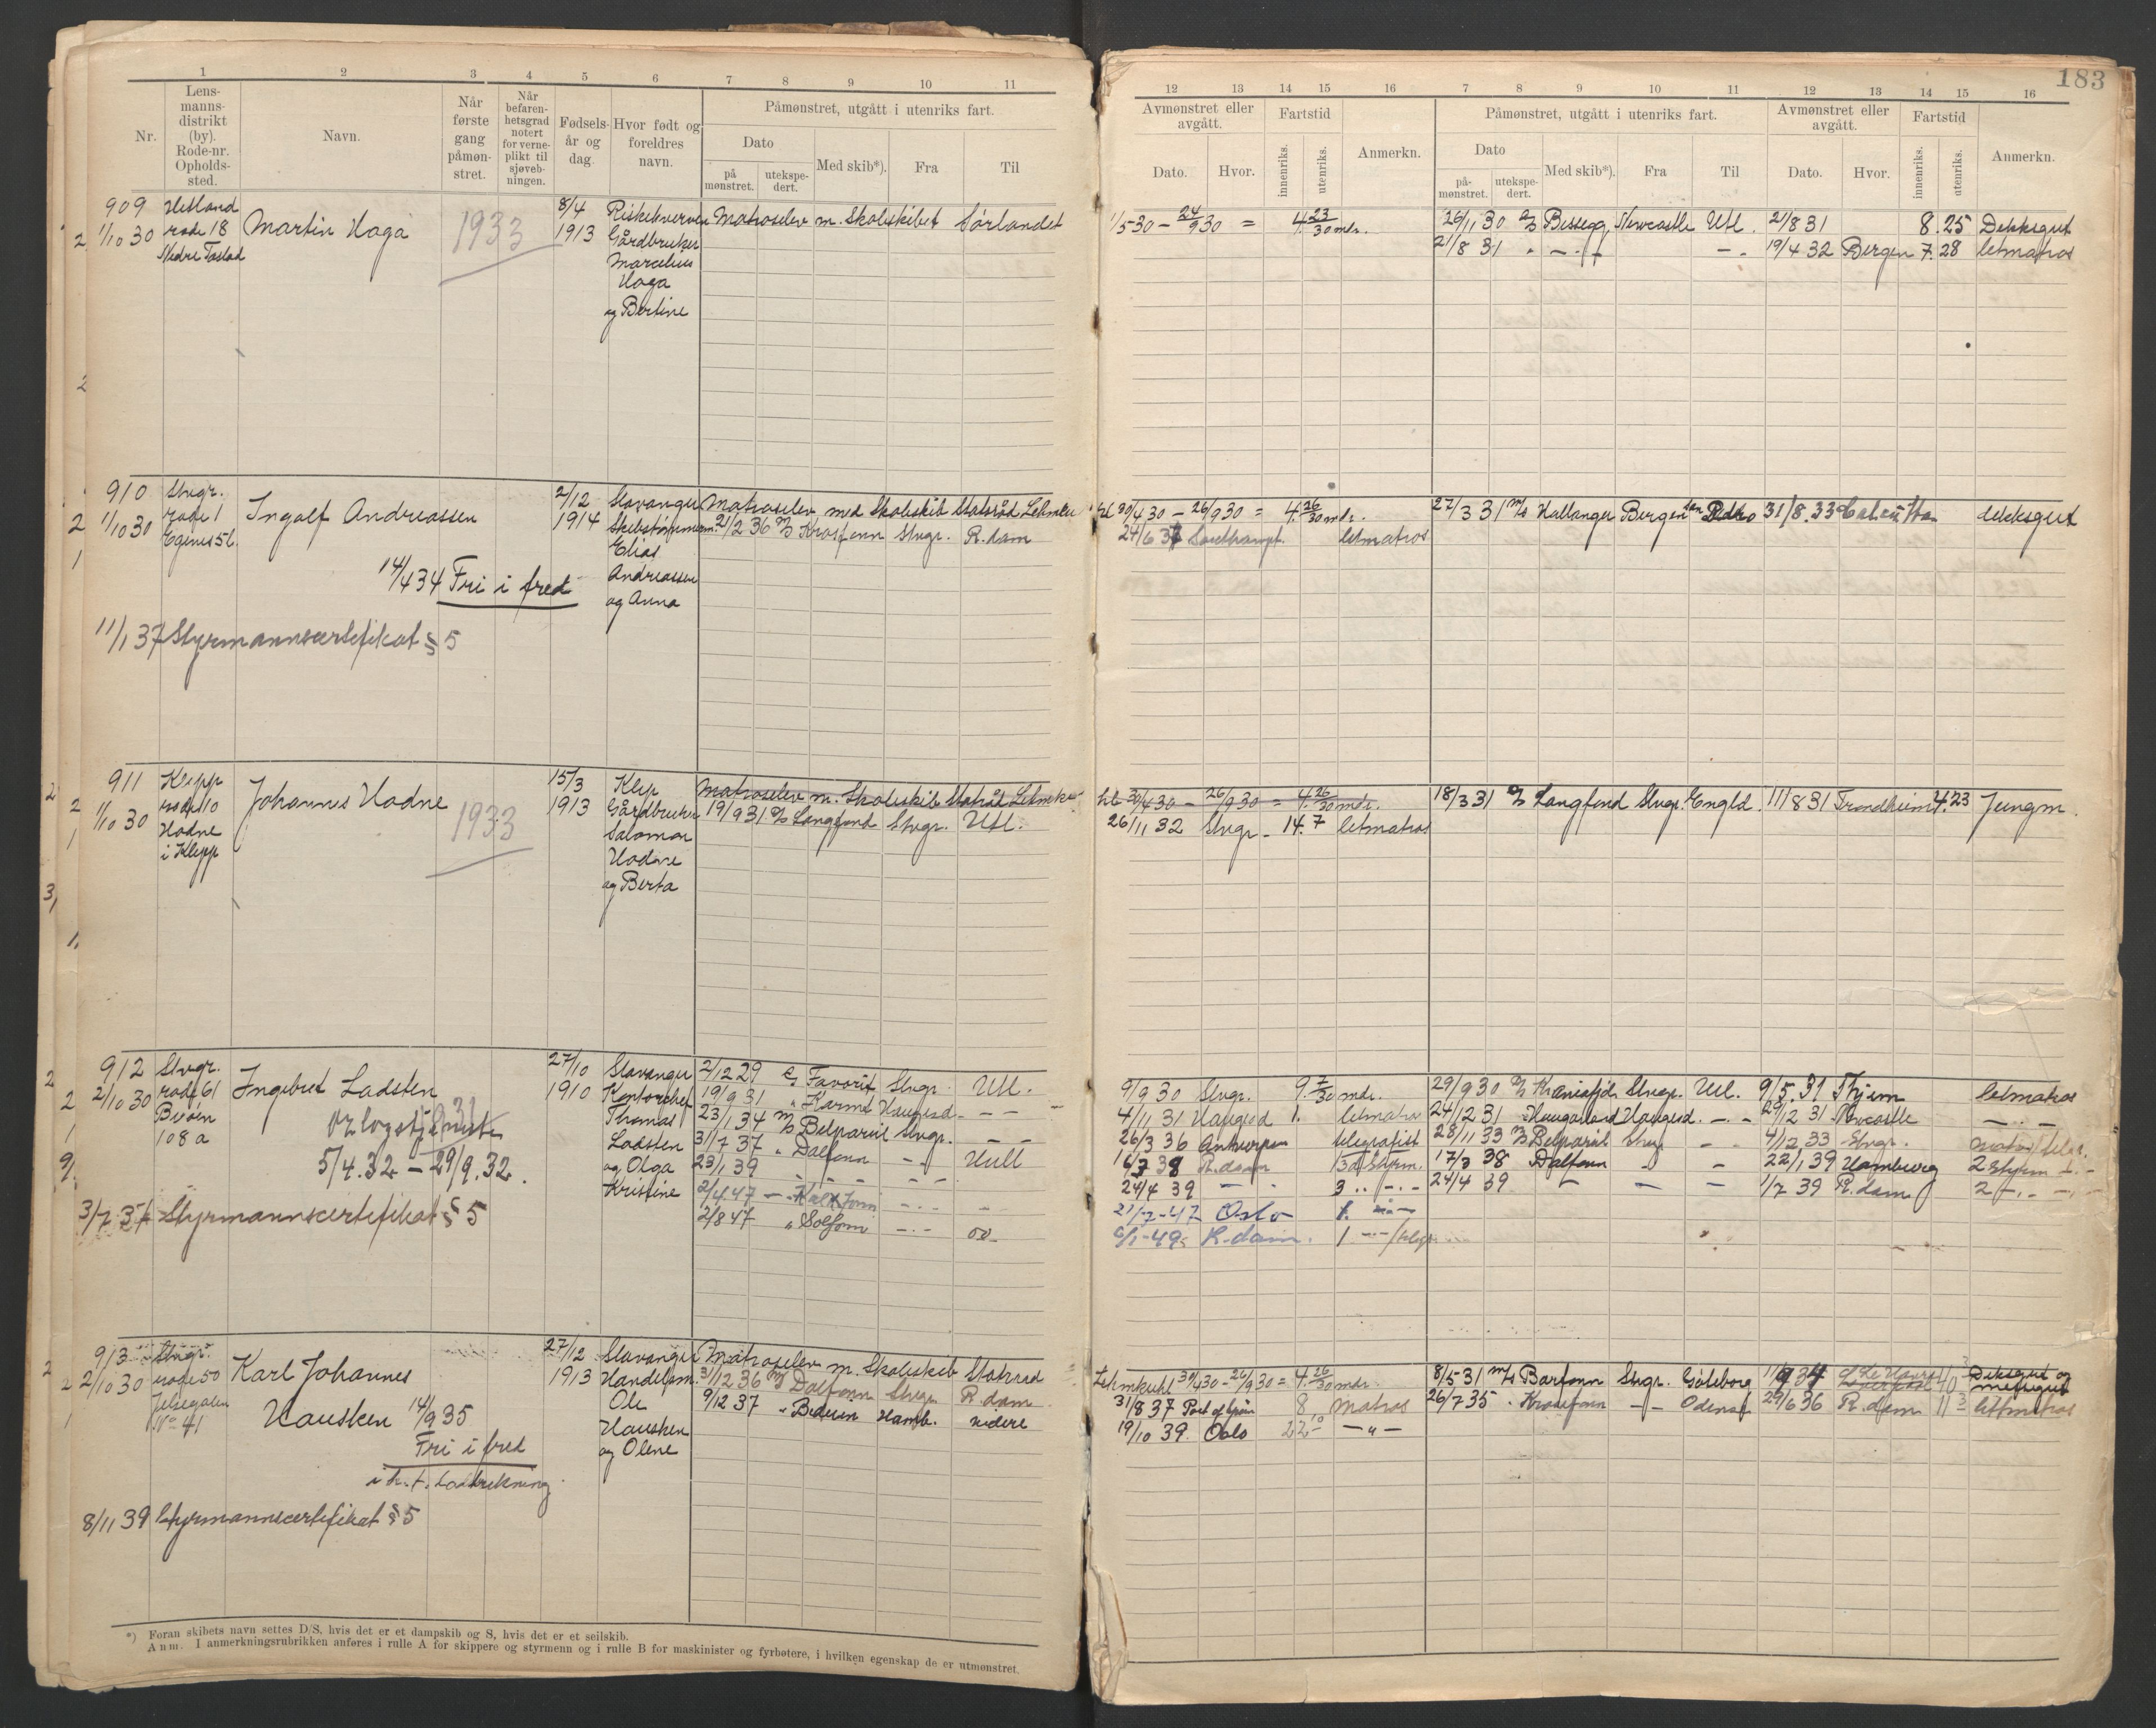 183
1 2 3 4 5 6 7 8 9 10 11
Nr.
Lens-
manns-
distrikt
(by).
Rode-nr.
Opholds-
sted.
Navn.
Når
første
gang
påmøn-
stret.
Når
befaren-
hetsgrad
notert
for verne-
plikt til
sjøveb-
ningen.
Fødsels-
år og
dag.
Hvor født og
foreldres
navn.
Påmønstret, utgått i utenriks fart.
Dato
på
mønstret.
utekspe-
dert.
Med skib*).
Fra
Til
12 13 14 15 16 7 8 9 10 11 12 13 14 15 16
Avmønstret eller
avgått.
Dato.
Hvor.
Fartstid
innenriks.
utenriks.
Anmerkn.
Påmønstret, utgått i utenriks fart.
Dato
på-
mønstret.
utekspe-
dert.
Med skib*).
Fra
Til
Avmønstret eller
avgått.
Dato.
Hvor.
Fartstid
innenriks.
utenriks.
Anmerkn.
909
1/10 30
Hetland
rode 18
Nedre Tastad
Martin Haga
1933
8/4
1913
Riskekverven
Gårdbruker
Marcelius
Haga
og Bertine
Matroselev m. Skoleskibet Sørlandet
1/5 30 - 24/9 30 = 4 23/30 mdr.
26/11 30 Bessegg Newcastle Utl. 21/8 31 8.25 Dekksgut
21/8 31 19/4 32 Bergen 7.28 letmatros
910
1/10 30
Stvgr.
rode 1
Egines 56
Ingolf Andreassen
14/4 34 Fri i fred
11/1 37 Styrmannscertifikat § 5
2/12
1914
Stavanger
Skibstømmerm.
Elias
Andreassen
og Anna
Matroselev med Skoleskib Statsråd Lehmku
21/2 36 Krosfonn Stvgr. R.dam
hl 30/4 30 - 26/9 30 = 4 26/30 mdr.
24/6 37 Southampt. letmatros
27/3 31 M/S Hallanger Bergen 31/8 33 dekksgut
911
1/10 30
Klepp
rode 10
Hodne
i Klepp
Johannes Hodne
1933
15/3
1913
Klep
Gårdbruker
Salomon
Hodne
og Berta
Matroselev m. Skoleskib Statsråd Lehmku
19/9 31 Langfond Stvgr. Utl.
hl 30/4 30 - 26/9 30 = 4 26/30 mdr.
26/11 32 Stvgr. - 14.7 letmatros
18/3 31 Langfond Stvgr. Engld. 11/8 31 Trondheim 4.23 Jungm.
912
2/10 30
Stvgr.
rode 61
Buøen
108 a
Ingebret Ladsten
Orlogstjeneste
5/4.32 - 29/9.32.
3/7 37 Styrmannscertifikat § 5
27/10
1910
Stavanger
Kontorchef
Thomas
Ladsten
og Olga
Kristine
2/12 29 Favorit Stvgr. Utl.
19/9 31 " Karmt Haugesd - -
23/1 34 M/S Belpareil Stvgr. - -
31/7 37 " Dalfonn - - Hull
23/1 39 - - - -
2/4 47 - -
2/8 47 " Solfonn - - oo-
9/9 30 Stvgr. 9 7/30 mdr.
4/11 31 Haugesd 1. letmatros
26/3 36 Antwerpen telegrafist
16/3 38 R.dam 3d styrm.
24/4 39 - - 3 " - -
21/7-47 Oslo 1.
6/1-49 R.dam. 1 - - /telegr.
29/9 30 Kraniofjel Stvgr. Utl. 9/5. 31 Thjem letmatros
24/12 31 Haugarland Haugesd. - - 29/12 31 Newcastle - -
28/11 33 M/S Belpareil Stvg - 4/12 33 Stvgr. matros/telgr.
17/3 38 Dalfonn - - 22/1 39 Hamburg 2 styrm - -
24/4 39 - - - 1/7 39 R.dam 2 - -
913
2/10 30
Stvgr.
rode 50
Jelsegaten
No 41
Karl Johannes
Hausken 14/9 35
Fri i fred
i h. t. Lodtrekning
8/11 39 Styrmannscertifikat § 5
27/12
1913
Stavanger
Handelsm.
Ole
Hausken
og Olene
Matroselev m. Skoleskib Statsraad
31/12 36 M/S Dalfonn Stvgr. R.dam
9/12 37 " Beduin Hamb. videre
Lehmkuhl 30/4 30 - 26/9 30 = 4 26/30 mdr.
31/8 37 Port of Spain 8 matros
19/10 39 Oslo 22 10 - " -
8/5-31 M/S Barfonn Stvgr. Gøteborg Le Havre 10 Dekksgut og
messegut
26/7 35 " Krosfonn - - Odense 29/6 36 R.dam 11 3 lettmatros
*) Foran skibets navn settes D/S, hvis det er et dampskib og S, hvis det er et seilskib.
Anm. I anmerkningsrubrikken anføres i rulle A for skippere og styrmenn og i rulle B for maskinister og fyrbøtere, i hvilken egenskap de er utmønstret.